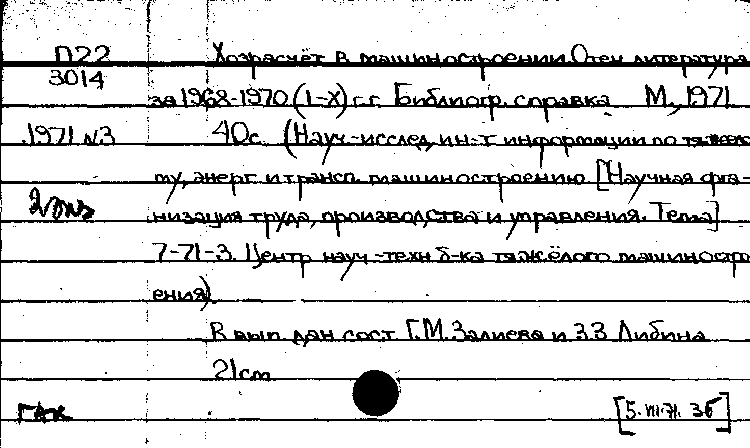 П22 Хозрасчёт в машиностроении. Отеч литература
3014 за 1968-1970 (I-X) г.г. Библиогр. справка М., 1971
1971 N3 40с. (Науч.-исслед. ин-т информации по тяжело
му, энерг. и трансп. машиностроению [Научная орга-
2 экз низация труда, производства и управления. Тема]
7-71-3. Центр науч.-техн б-ка тяжёлого машиностро
ения).
В вып. дан сост. Г.М. Залиева и З.З. Либина
21см
ГАК [5.VIII.71. 3б]